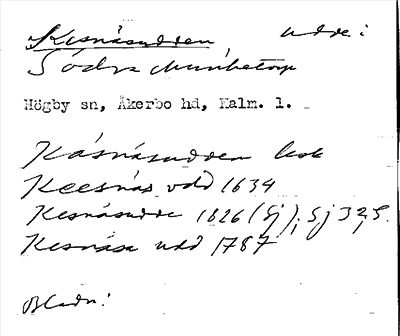 Kesnäsudden, udde i
Södra Munketorp
Högby sn, Åkerbo hd, Kalm. l.
Käsnäsudden lsk
Keesnäs udd 1634
Kesnäsudde 1826 (Sj), Sj 32,5.
Kesnäsa udd 1787
Bladn: